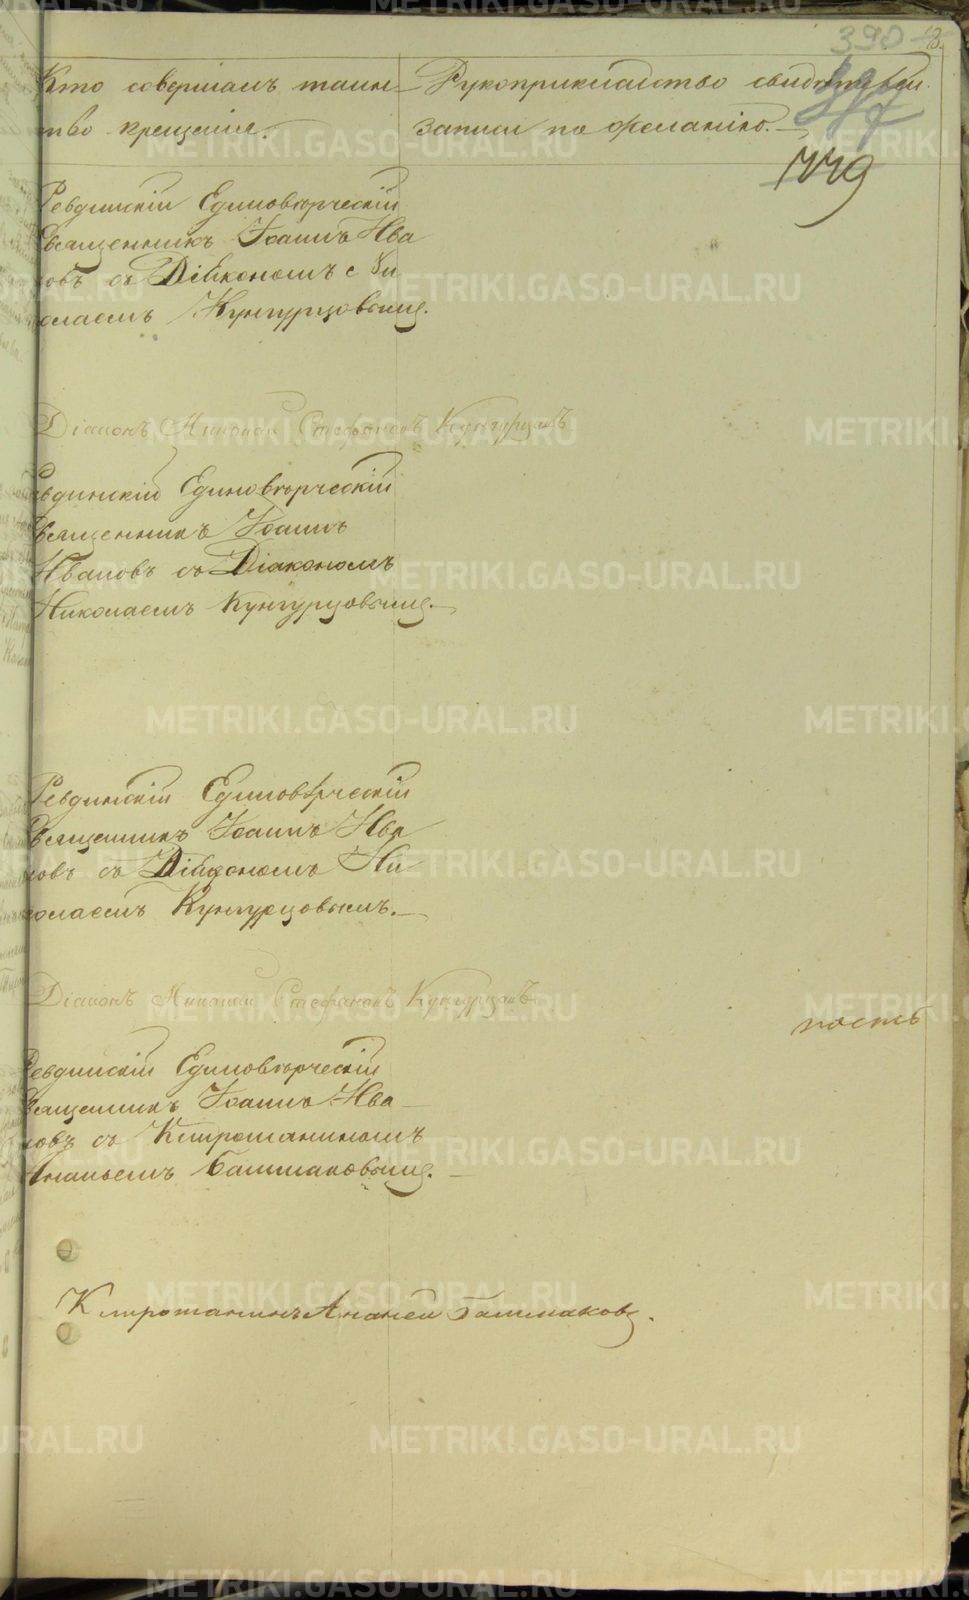 390
Кто совершалъ таин- Рукоприкладство свидетелей
тво крещенія. записи по желанію.
779
Ревдинскій Единоверческій
Священникъ Іоаннъ Ива
новъ съ Діякономъ с Ни
колаемъ Кунгурцовымъ.
Діаконъ Николай Стефановъ Кунгурцовъ
Ревдинскій Единоверческій
Священникъ Іоаннъ
Ивановъ съ Діакономъ
Николаемъ Кунгурцовымъ.
Ревдинскій Единоверческій
Священникъ Іоаннъ Ива
новъ съ Діякономъ Ни
колаемъ Кунгурцовымъ.
Діаконъ Николай Стефановъ Кунгурцовъ
ность
Ревдинскій Единоверческій
Священникъ Іоаннъ Ива
новъ съ Клирошаниномъ
Ананьемъ Башмаковымъ.
Клирошанинъ Ананей Башмаковъ.
METRIKI.GASO-URAL.RU